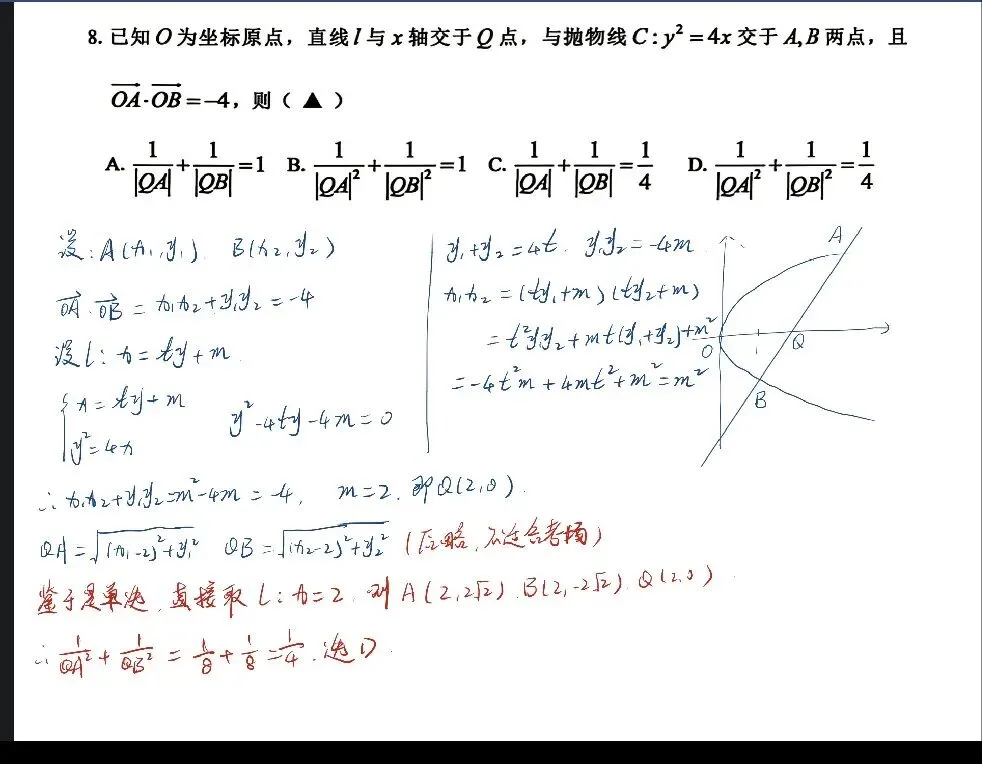 8. 已知O为坐标原点，直线l与x轴交于Q点，与抛物线C:y²=4x交于A,B两点，且
OA·OB=-4，则（ ▲ ）
A. 1/|QA|+1/|QB|=1 B. 1/|QA|²+1/|QB|²=1 C. 1/|QA|+1/|QB|=1/4 D. 1/|QA|²+1/|QB|²=1/4
设: A(x₁,y₁) B(x₂,y₂)
OA·OB=x₁x₂+y₁y₂=-4
设l: x=ty+m
{x=ty+m
y²=4x
y²-4ty-4m=0
y₁+y₂=4t. y₁y₂=-4m
x₁x₂=(ty₁+m)(ty₂+m)
=t²y₁y₂+mt(y₁+y₂)+m²
=-4t²m+4mt²+m²=m²
A
O
1
Q
B
∴x₁x₂+y₁y₂=m²-4m=-4, m=2. 即Q(2,0).
QA=√((x₁-2)²+y₁²) QB=√((x₂-2)²+y₂²) (后略,不适合考场)
鉴于是单选,直接取l: x=2. 则A(2,2√2).B(2,-2√2).Q(2,0).
∴1/QA²+1/QB²=1/8+1/8=1/4.选D.